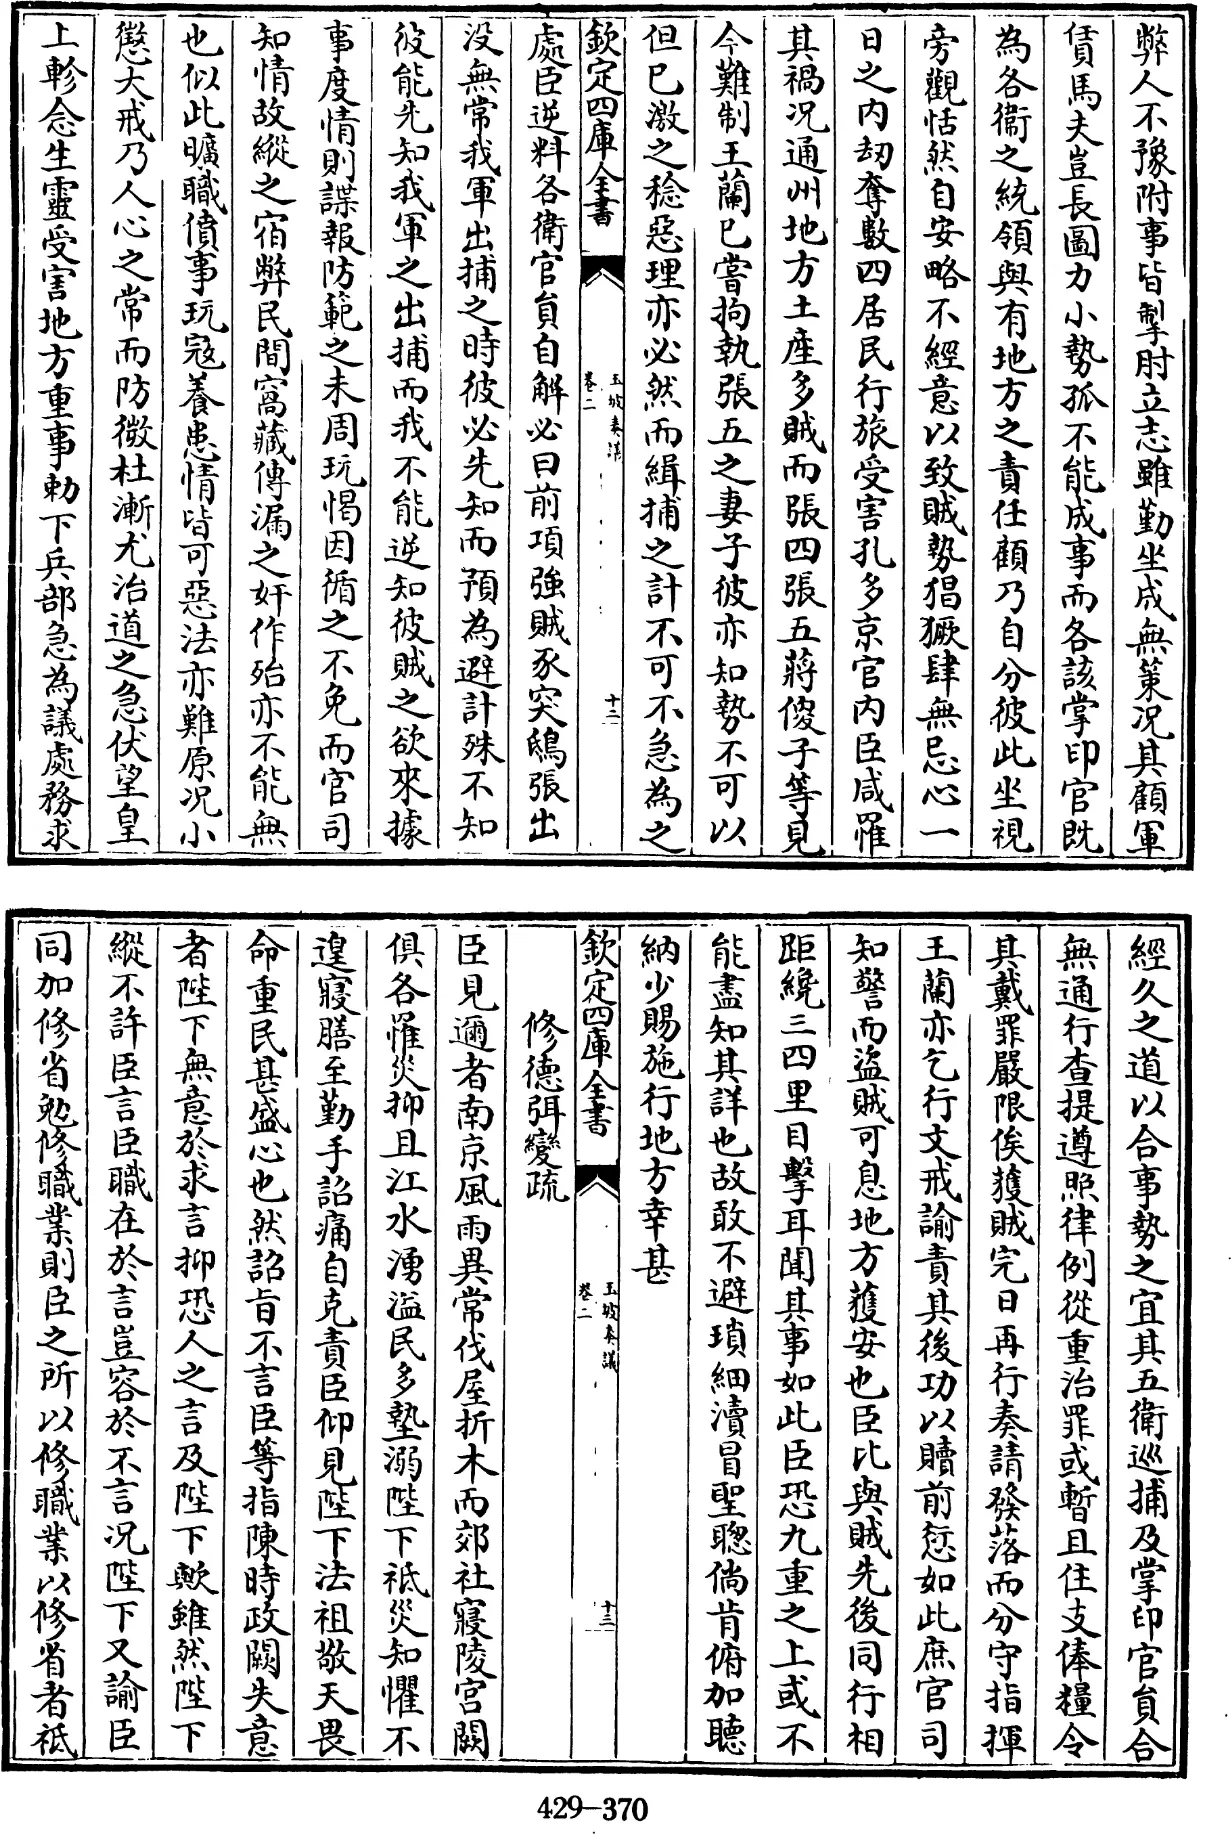 弊人不豫附事皆掣肘立志雖勤坐成無策况其顧軍
賃馬夫豈長圖力小勢孤不能成事而各該掌印官既
為各衞之統領與有地方之責任顧乃自分彼此坐視
旁觀恬然自安略不經意以致賊勢猖獗肆無忌心一
日之内刼奪數四居民行旅受害孔多京官内臣咸罹
其禍况通州地方土産多賊而張四張五蔣傻子等見
今難制王蘭已嘗拘執張五之妻子彼亦知勢不可以
但已激之稔惡理亦必然而緝捕之計不可不急為之
欽定四庫全書
玉坡奏議
卷二
十二
處臣逆料各衛官員自解必曰前項強賊豕突鴟張出
没無常我軍出捕之時彼必先知而預為避計殊不知
彼能先知我軍之出捕而我不能逆知彼賊之欲來據
事度情則諜報防範之未周玩愒因循之不免而官司
知情故縱之宿弊民間窩藏傳漏之奸作殆亦不能無
也似此曠職僨事玩寇養患情皆可惡法亦難原况小
懲大戒乃人心之常而防微杜漸尤治道之急伏望皇
上軫念生靈受害地方重事勅下兵部急為議處務求
經久之道以合事勢之宜其五衛巡捕及掌印官員合
無通行查提遵照律例從重治罪或暫且住支俸糧令
其戴罪嚴限俟獲賊完日再行奏請發落而分守指揮
王蘭亦乞行文戒諭責其後功以贖前愆如此庶官司
知警而盜賊可息地方獲安也臣比與賊先後同行相
距纔三四里目擊耳聞其事如此臣恐九重之上或不
能盡知其詳也故敢不避瑣細瀆冒聖聰倘肯俯加聽
納少賜施行地方幸甚
欽定四庫全書
玉坡奏議
卷二
十三
修德弭變疏
臣見邇者南京風雨異常伐屋折木而郊社寢陵宫闕
俱各罹災抑且江水湧溢民多墊溺陛下祗災知懼不
遑寢膳至勤手詔痛自克責臣仰見陛下法祖敬天畏
命重民甚盛心也然詔旨不言臣等指陳時政闕失意
者陛下無意於求言抑恐人之言及陛下歟雖然陛下
縱不許臣言臣職在於言豈容於不言况陛下又諭臣
同加修省勉修職業則臣之所以修職業以修省者祗
429-370